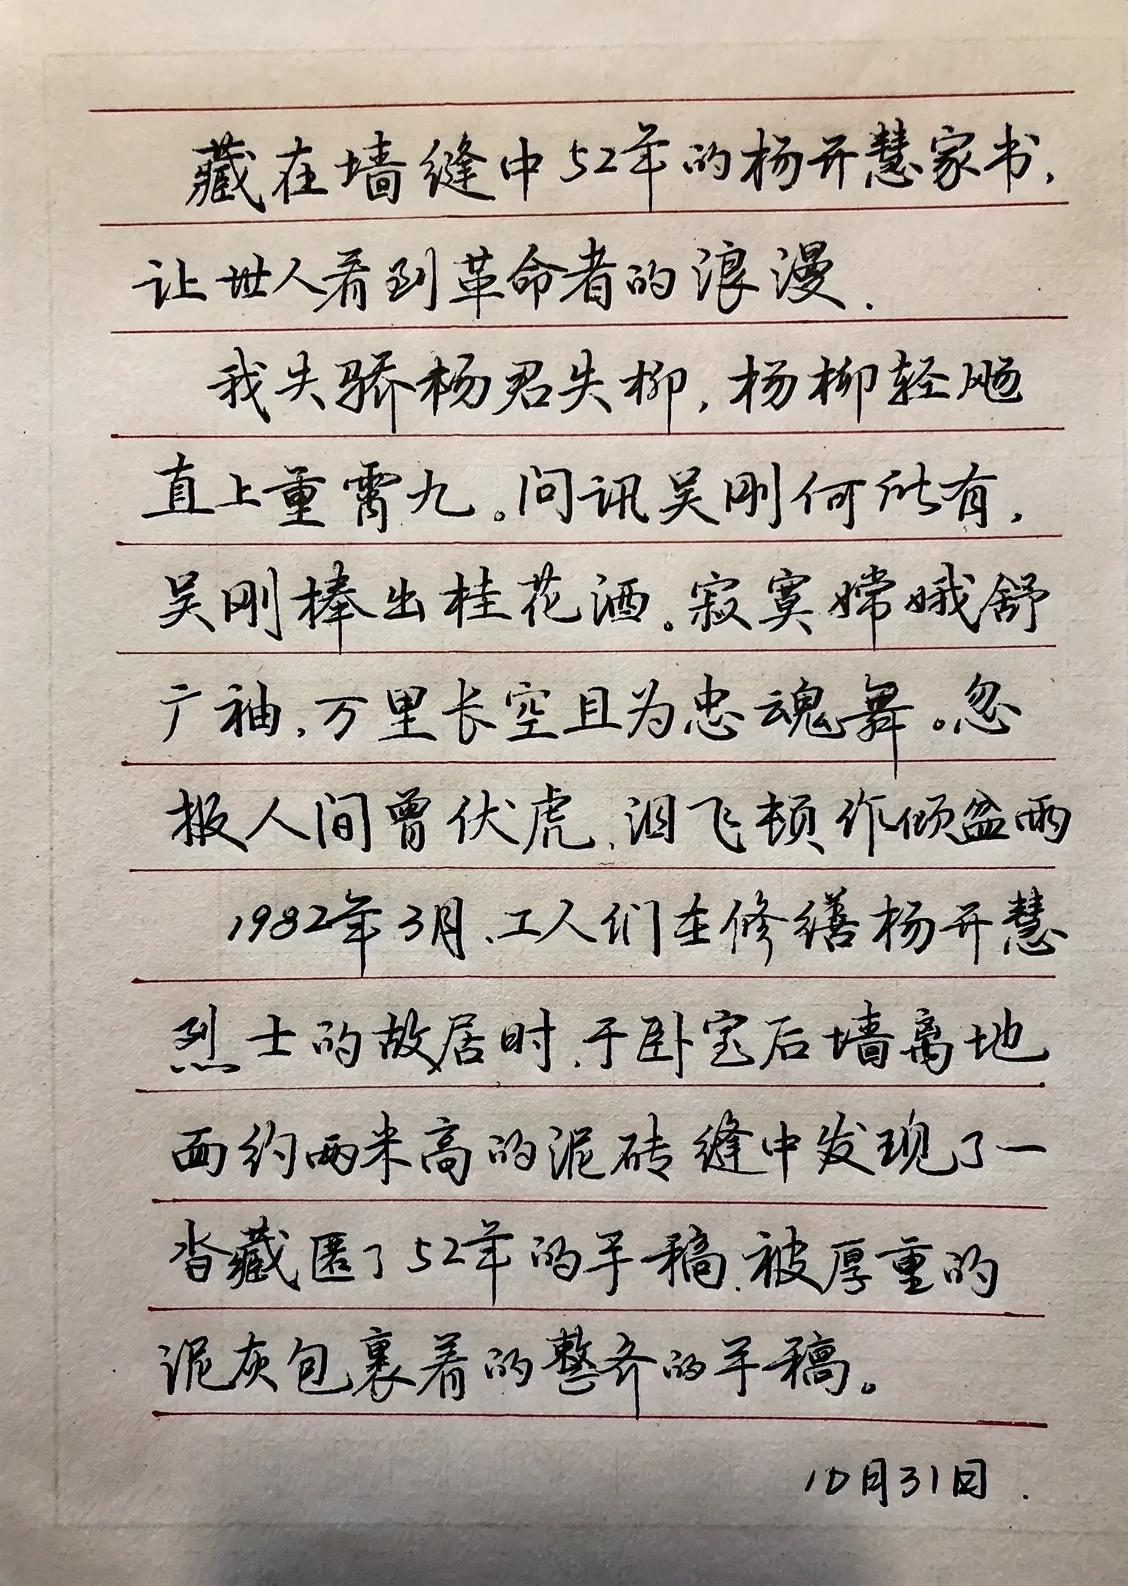 藏在墙缝中52年的杨开慧家书,
让世人看到革命者的浪漫.
我失骄杨君失柳,杨柳轻飏
直上重霄九。问讯吴刚何所有,
吴刚捧出桂花酒。寂寞嫦娥舒
广袖,万里长空且为忠魂舞。忽
报人间曾伏虎,泪飞顿作倾盆雨
1982年3月、工人们在修缮杨开慧
烈士的故居时、于卧室后墙离地
面约两米高的泥砖缝中发现了一
沓藏匿了52年的手稿、被厚重的
泥灰包裹着的整齐的手稿。
10月31日.